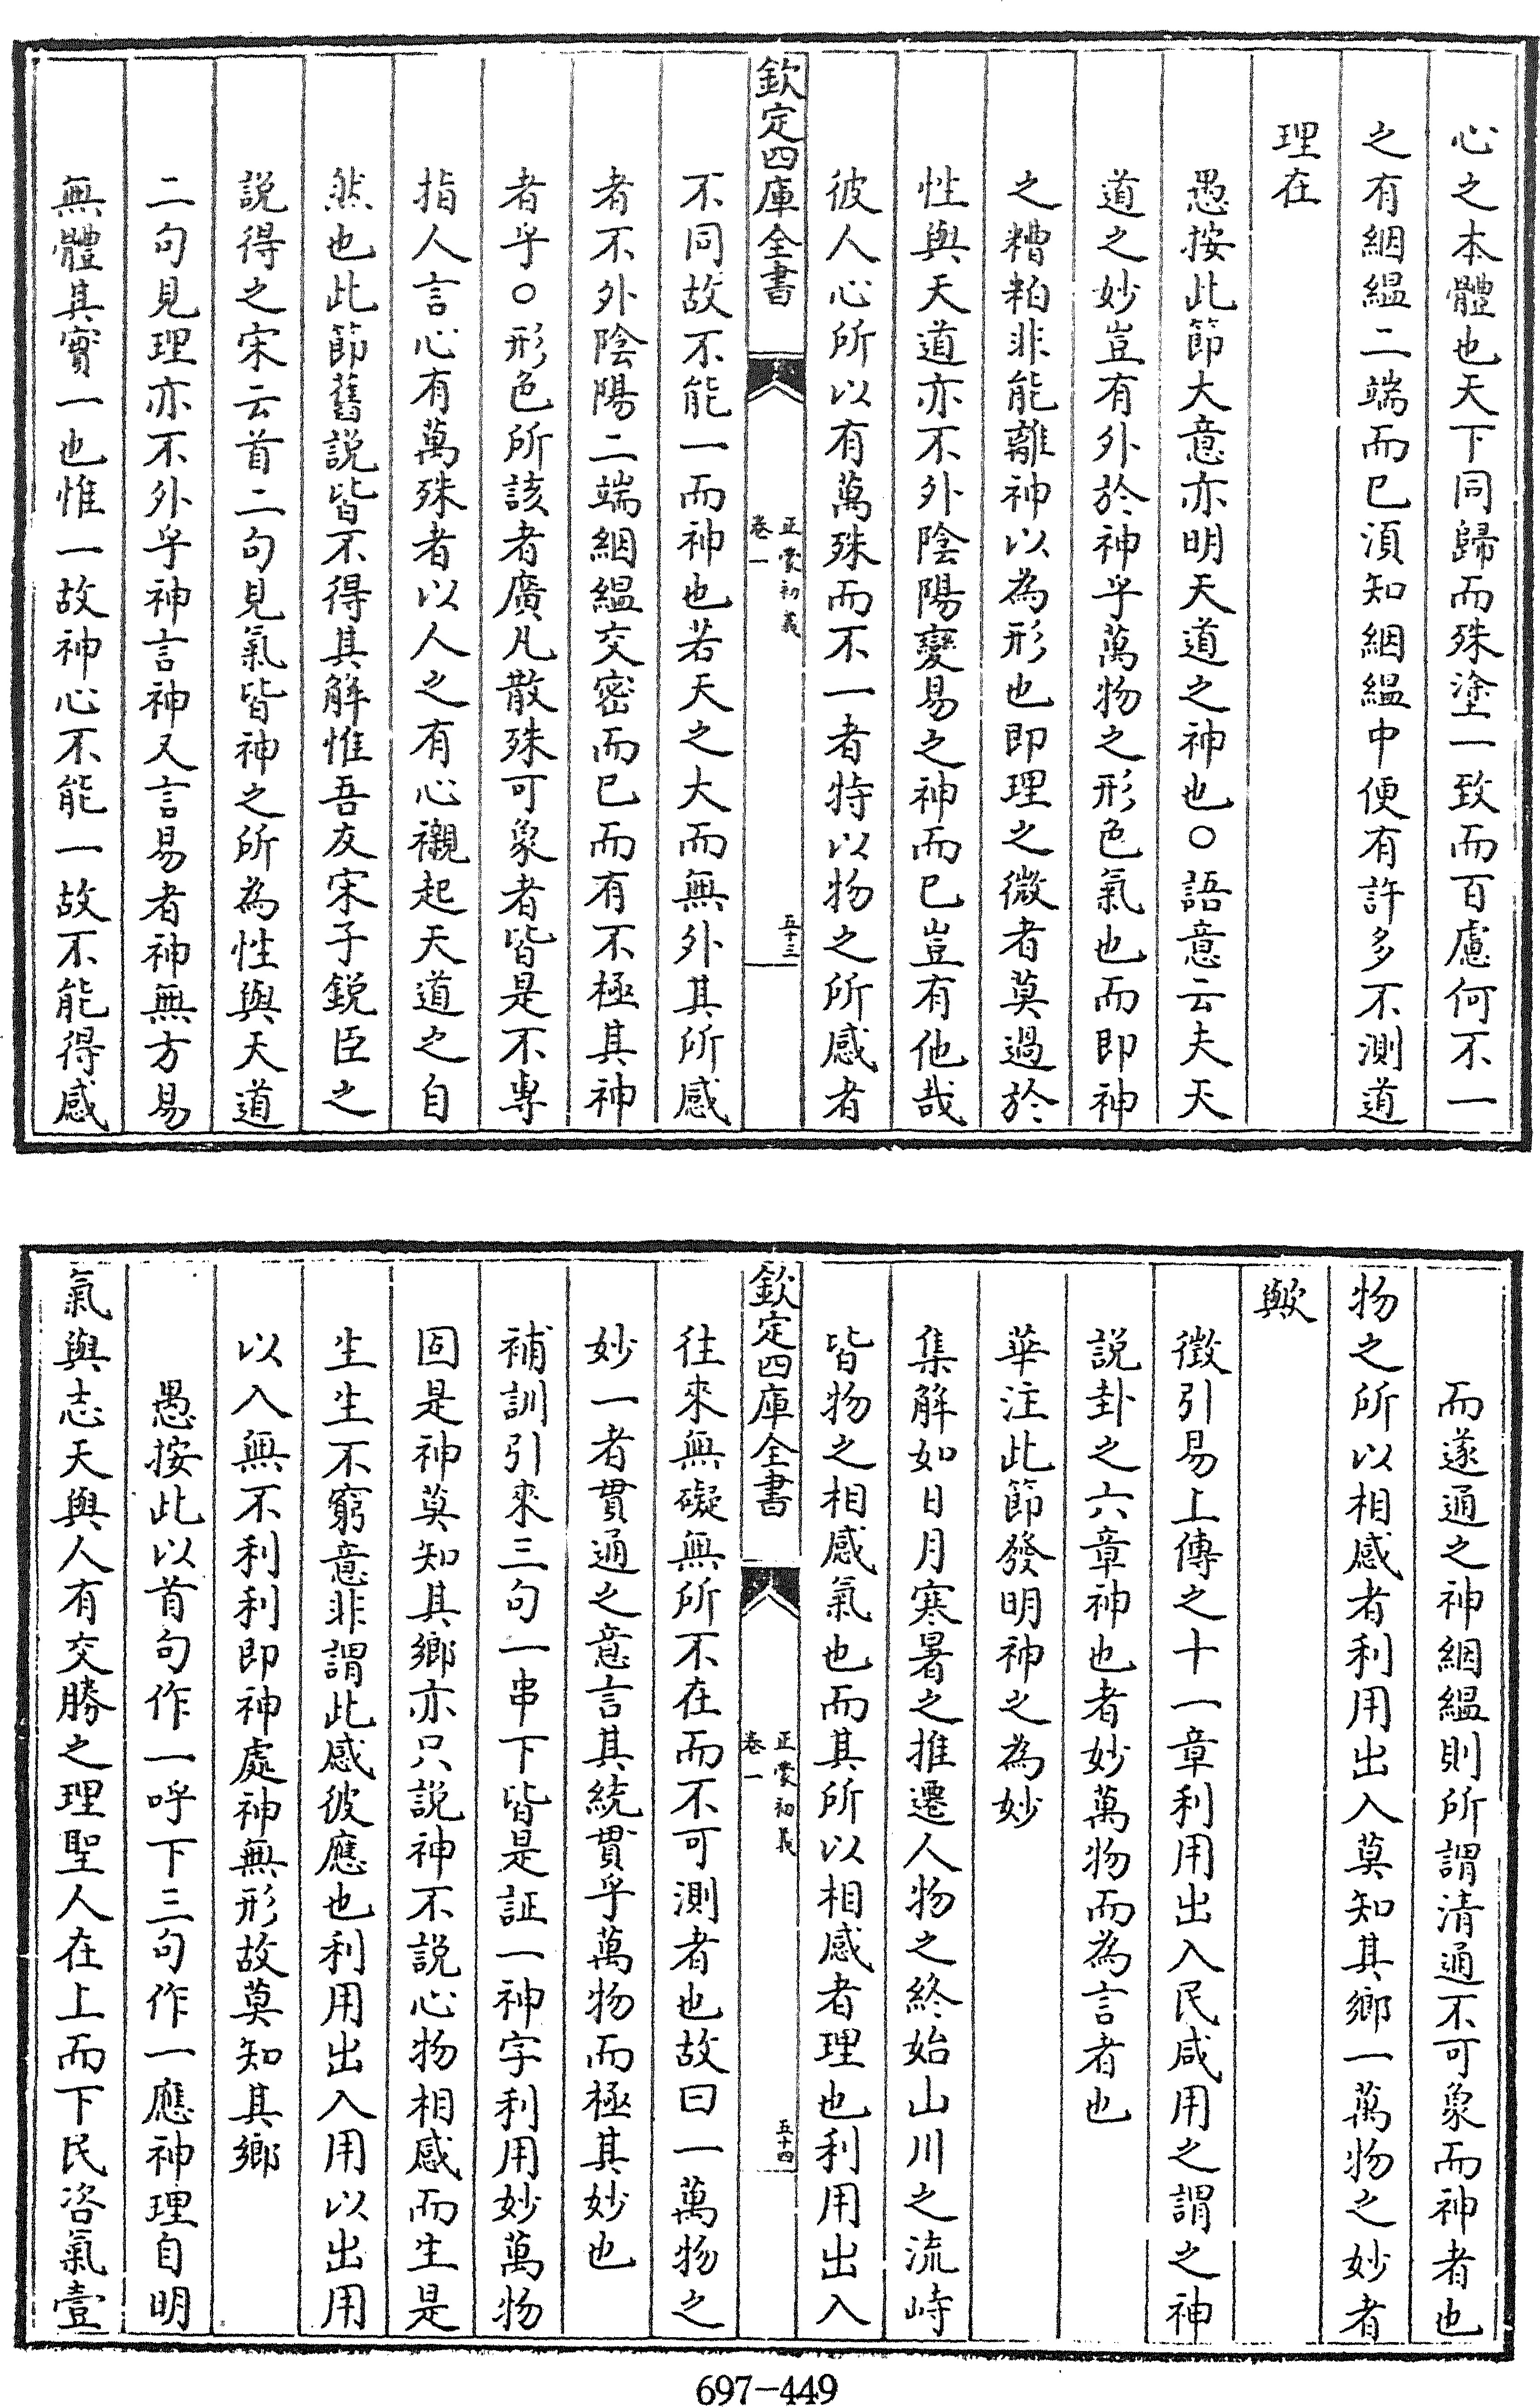 心之本體也天下同歸而殊塗一致而百慮何不一
之有絪緼二端而已湏知絪緼中便有許多不測道
理在
愚按此節大意亦明天道之神也○語意云夫天
道之妙豈有外於神乎萬物之形色氣也而即神
之糟粕非能離神以為形也即理之微者莫過於
性與天道亦不外陰陽變易之神而已豈有他哉
彼人心所以有萬殊而不一者特以物之所感者
欽定四庫全書
正蒙初義
卷一
五十三
不同故不能一而神也若天之大而無外其所感
者不外陰陽二端絪緼交密而已而有不極其神
者乎○形色所該者廣凡散殊可象者皆是不專
指人言心有萬殊者以人之有心襯起天道之自
然也此節舊説皆不得其解惟吾友宋子鋭臣之
説得之宋云首二句見氣皆神之所為性與天道
二句見理亦不外乎神言神又言易者神無方易
無體其實一也惟一故神心不能一故不能得感
而遂通之神絪緼則所謂清通不可象而神者也
物之所以相感者利用出入莫知其鄉一萬物之妙者
歟
徵引易上傳之十一章利用出入民咸用之謂之神
説卦之六章神也者妙萬物而為言者也
華注此節發明神之為妙
集解如日月寒暑之推遷人物之終始山川之流峙
皆物之相感氣也而其所以相感者理也利用出入
欽定四庫全書
正蒙初義
卷一
五十四
往來無礙無所不在而不可測者也故曰一萬物之
妙一者貫通之意言其統貫乎萬物而極其妙也
補訓引來三句一串下皆是証一神字利用妙萬物
固是神莫知其鄉亦只説神不説心物相感而生是
生生不窮意非謂此感彼應也利用出入用以出用
以入無不利利即神處神無形故莫知其鄉
愚按此以首句作一呼下三句作一應神理自明
氣與志天與人有交勝之理聖人在上而下民咨氣壹
697-449